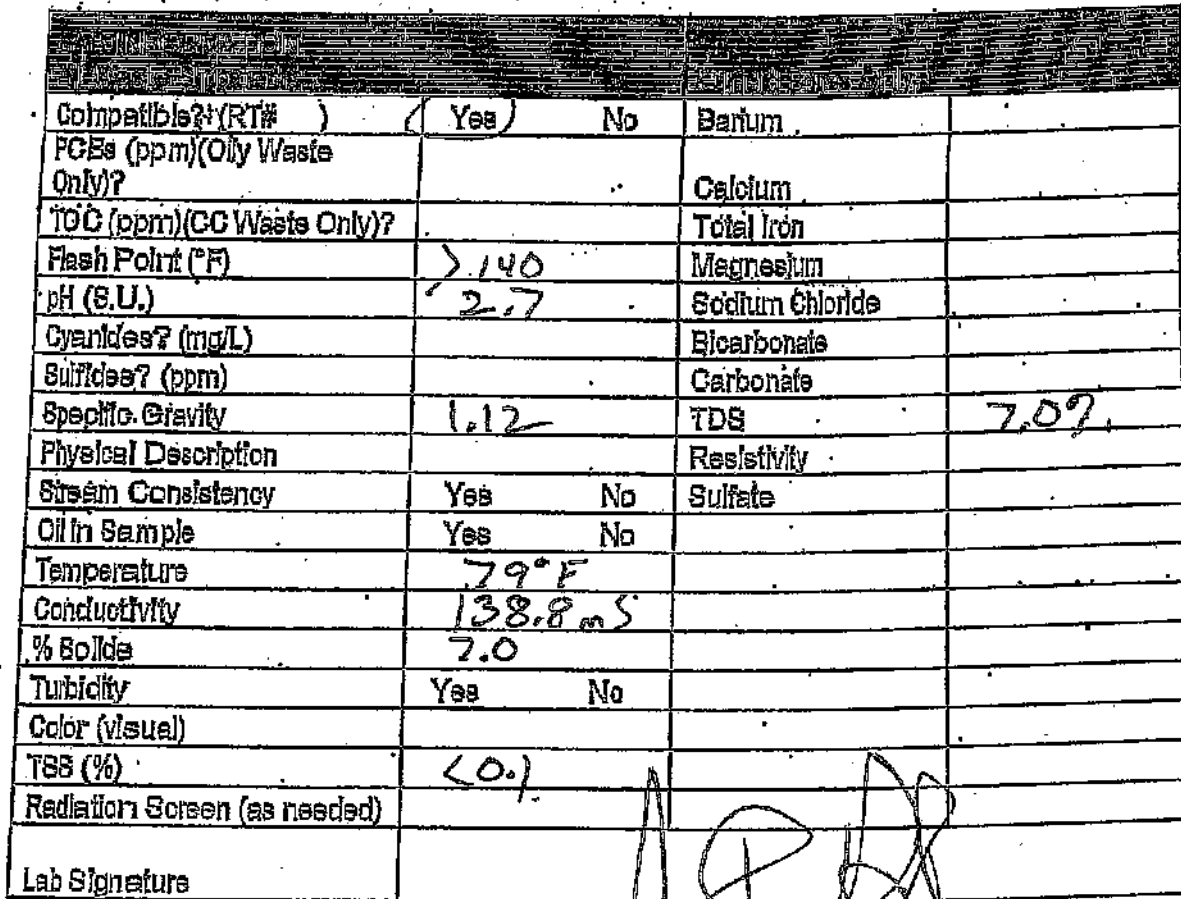 Compatible? (RT# ) Yes No Barium
PCBs (ppm)(Oily Waste
Only)? Calcium
TOC (ppm)(CC Waste Only)? Total Iron
Flash Point (°F) >140 Magnesium
pH (S.U.) 2.7 Sodium Chloride
Cyanides? (mg/L) Bicarbonate
Sulfides? (ppm) Carbonate
Specific Gravity 1.12 TDS 7.0%
Physical Description Resistivity
Stream Consistency Yes No Sulfate
Oil in Sample Yes No
Temperature 79°F
Conductivity 138.8 mS
% Solids 7.0
Turbidity Yes No
Color (visual)
TSS (%) <0.1
Radiation Screen (as needed)
Lab Signature